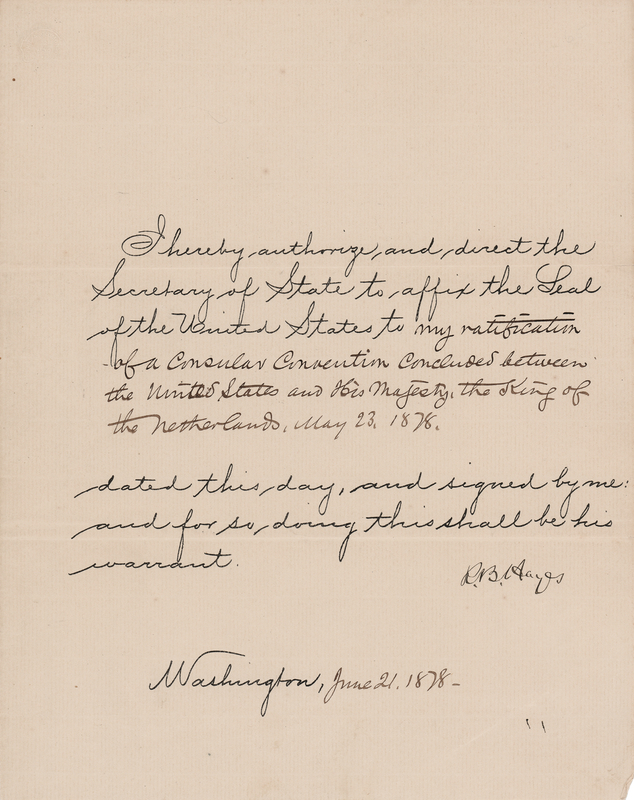 I hereby authorize and direct the
Secretary of State to affix the Seal
of the United States to my ratification
of a Consular Convention concluded between
the United States and His Majesty, the King of
the Netherlands, May 23, 1878.
dated this day, and signed by me:
and for so doing this shall be his
warrant.
R. B. Hayes
Washington, June 21, 1878-